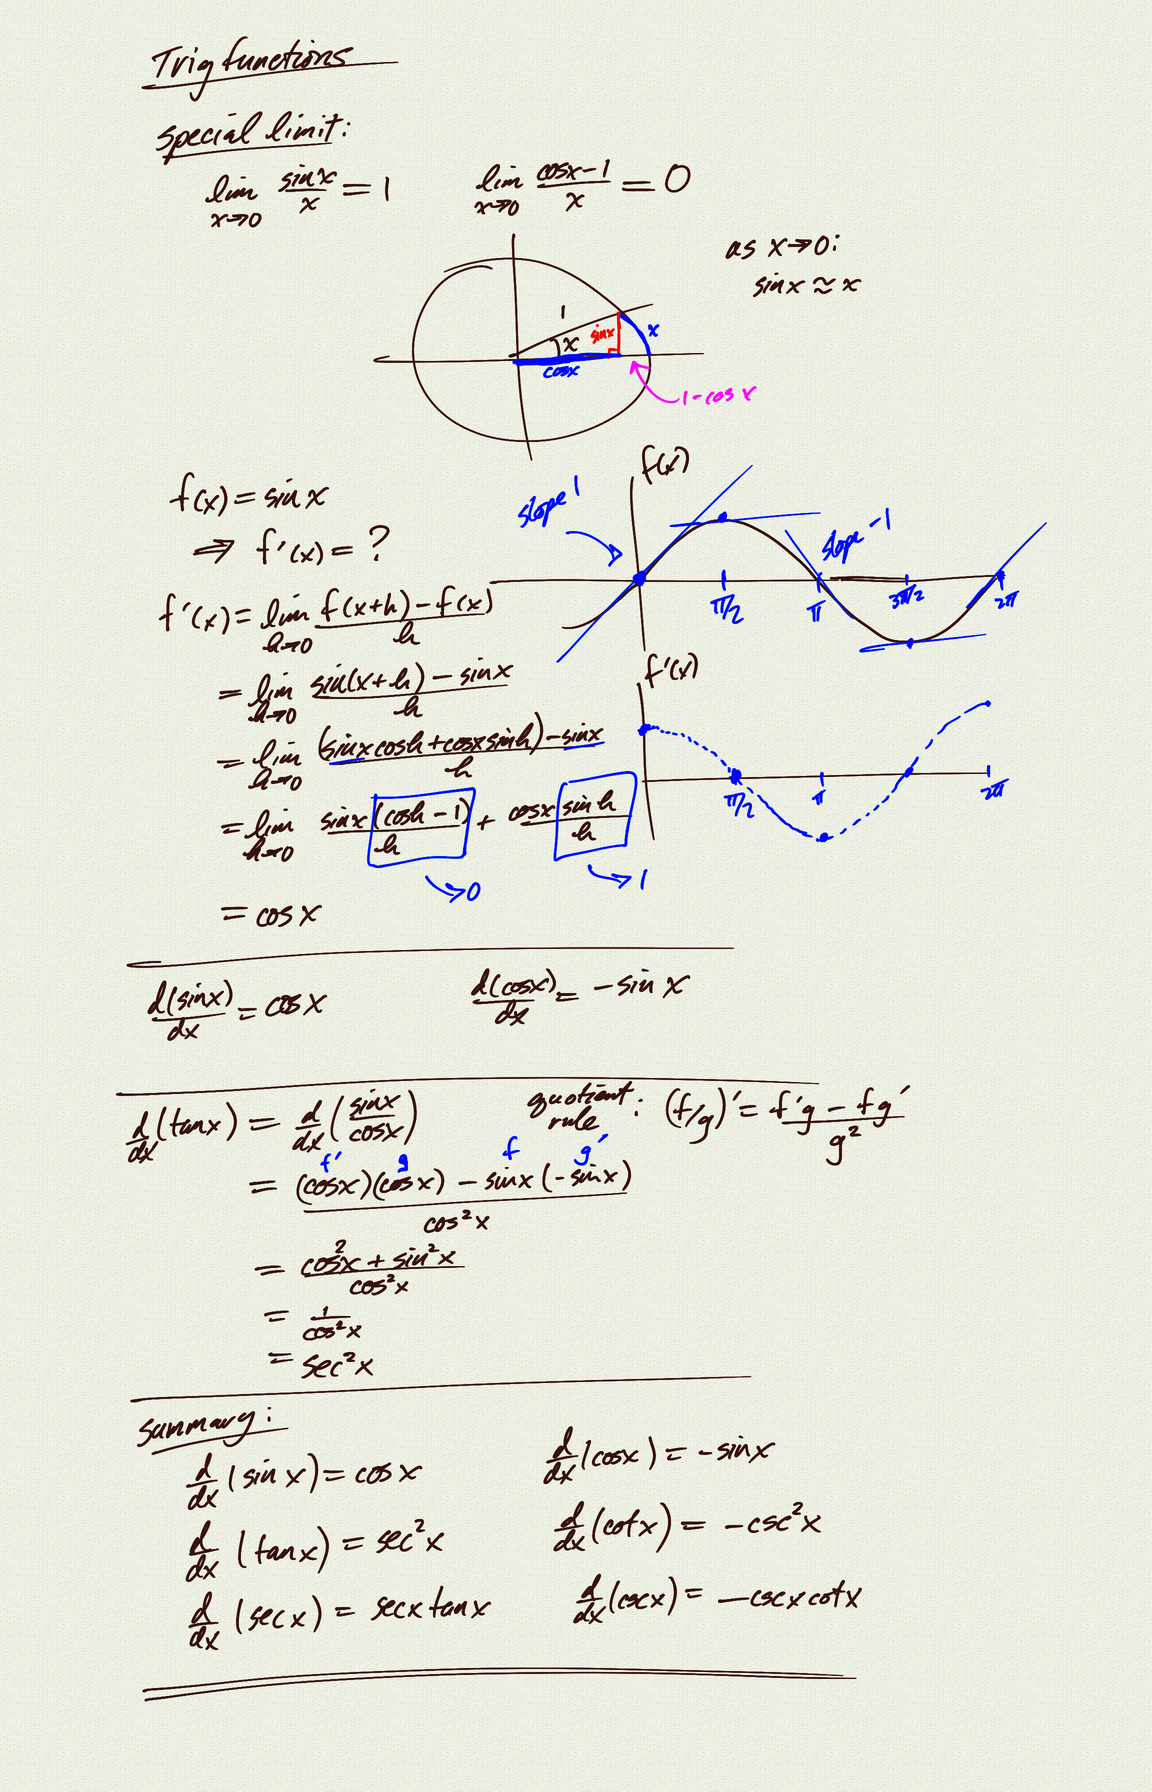 Trig functions
special limit:
lim x→0 sinx/x = 1    lim x→0 (cosx-1)/x = 0
as x→0:
sinx ≈ x
1
x
sinx
x
cosx
1-cosx
f(x) = sinx
⇒ f'(x) = ?
f'(x) = lim h→0 (f(x+h) - f(x))/h
= lim h→0 (sin(x+h) - sinx)/h
= lim h→0 ((sinx cosh + cosx sinh) - sinx)/h
= lim h→0 sinx (cosh - 1)/h + cosx sinh/h
→0    →1
= cosx
f(x)
slope 1
slope -1
π/2    π    3π/2    2π
f'(x)
π/2    π    2π
d(sinx)/dx = cosx    d(cosx)/dx = -sinx
d/dx (tanx) = d/dx (sinx/cosx)    quotient rule: (f/g)' = (f'g - fg')/g²
f'    g    f    g'
= ((cosx)(cosx) - sinx(-sinx))/cos²x
= (cos²x + sin²x)/cos²x
= 1/cos²x
= sec²x
Summary:
d/dx (sinx) = cosx    d/dx (cosx) = -sinx
d/dx (tanx) = sec²x    d/dx (cotx) = -csc²x
d/dx (secx) = secx tanx    d/dx (cscx) = -cscx cotx